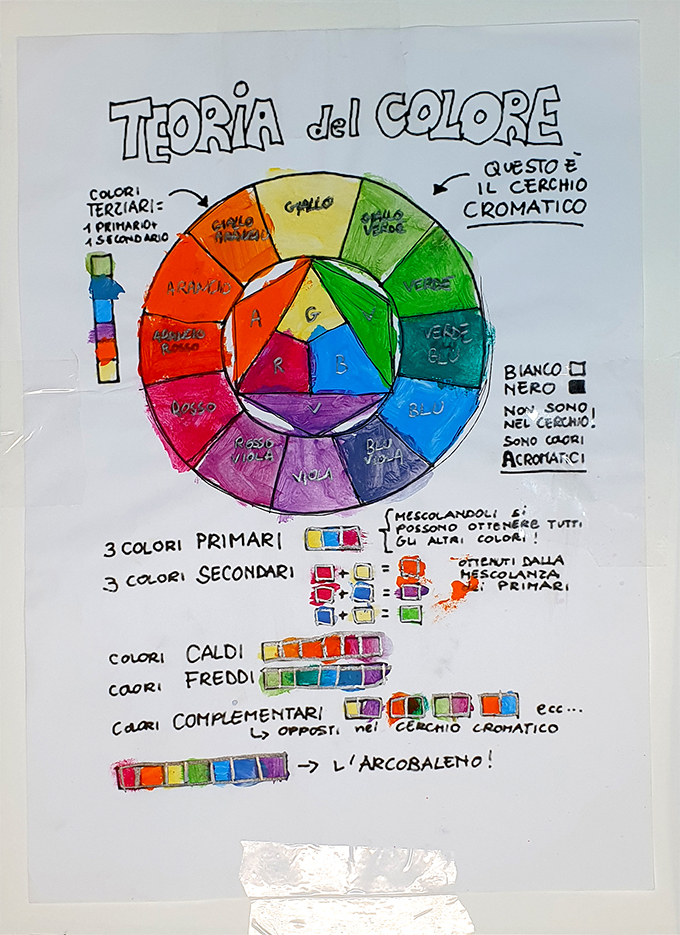 TEORIA del COLORE
COLORI
TERZIARI=
1 PRIMARIO+
1 SECONDARIO
QUESTO È
IL CERCHIO
CROMATICO
GIALLO
GIALLO
VERDE
VERDE
VERDE
BLU
BLU
BLU
VIOLA
VIOLA
ROSSO
VIOLA
ROSSO
ARANCIO
ROSSO
ARANCIO
GIALLO
ARANCIO
A
G
V
R
B
V
BIANCO
NERO
NON SONO
NEL CERCHIO!
SONO COLORI
ACROMATICI
3 COLORI PRIMARI
MESCOLANDOLI SI
POSSONO OTTENERE TUTTI
GLI ALTRI COLORI!
3 COLORI SECONDARI
+ =
+ =
+ =
OTTENUTI DALLA
MESCOLANZA
PRIMARI
COLORI CALDI
COLORI FREDDI
COLORI COMPLEMENTARI ecc...
↳ OPPOSTI nel CERCHIO CROMATICO
→ L'ARCOBALENO!